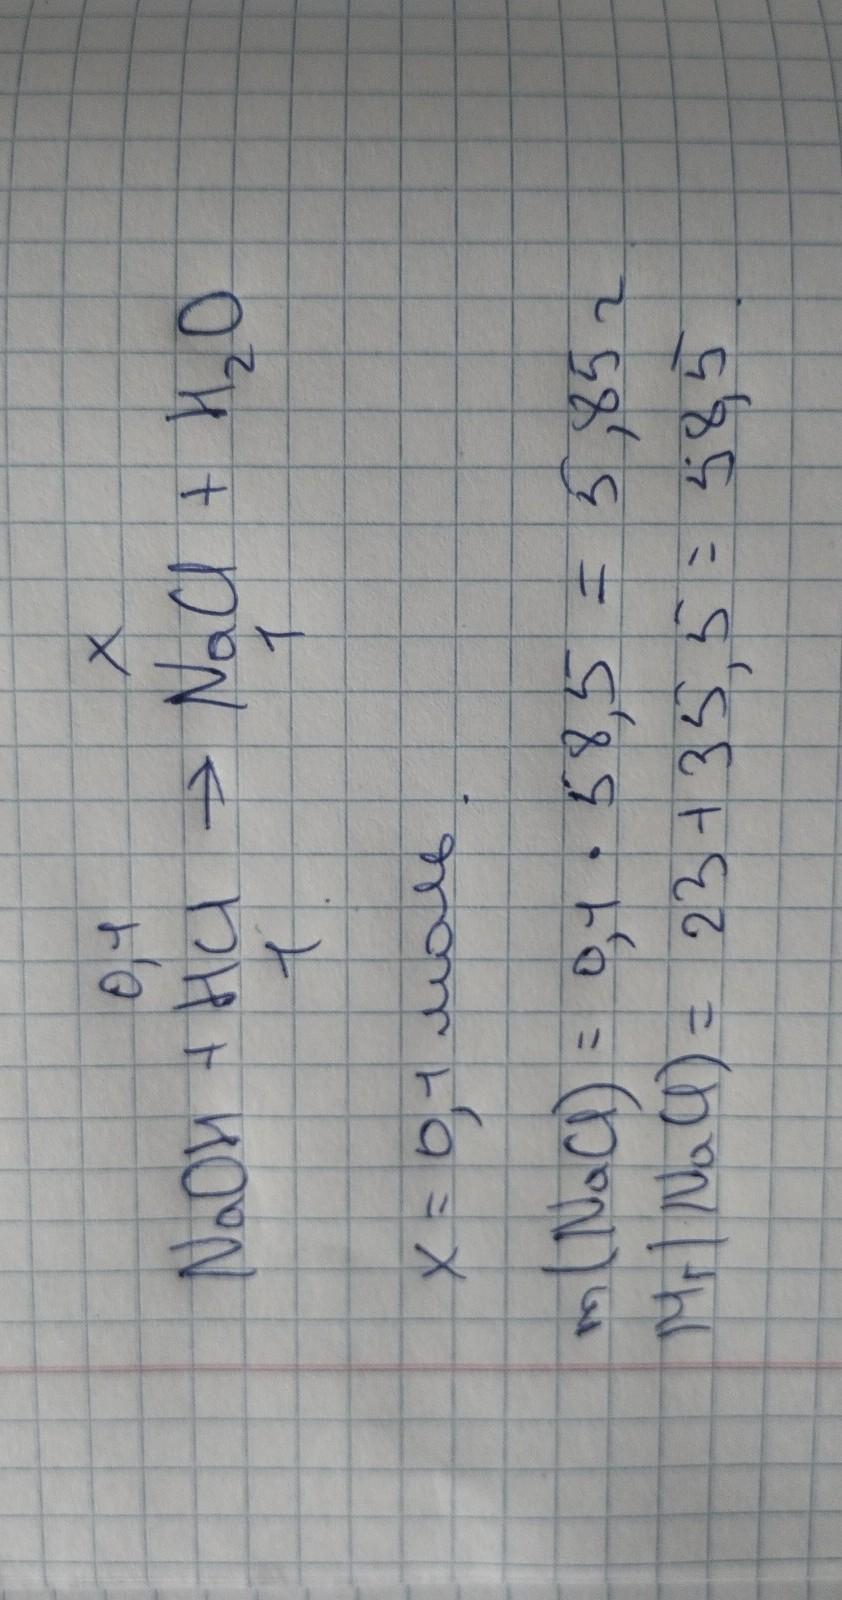 0,1 x
NaOH + HCl → NaCl + H₂O
1 1
x = 0,1 моль.
m(NaCl) = 0,1 · 58,5 = 5,85 г
Mr(NaCl) = 23 + 35,5 = 58,5.